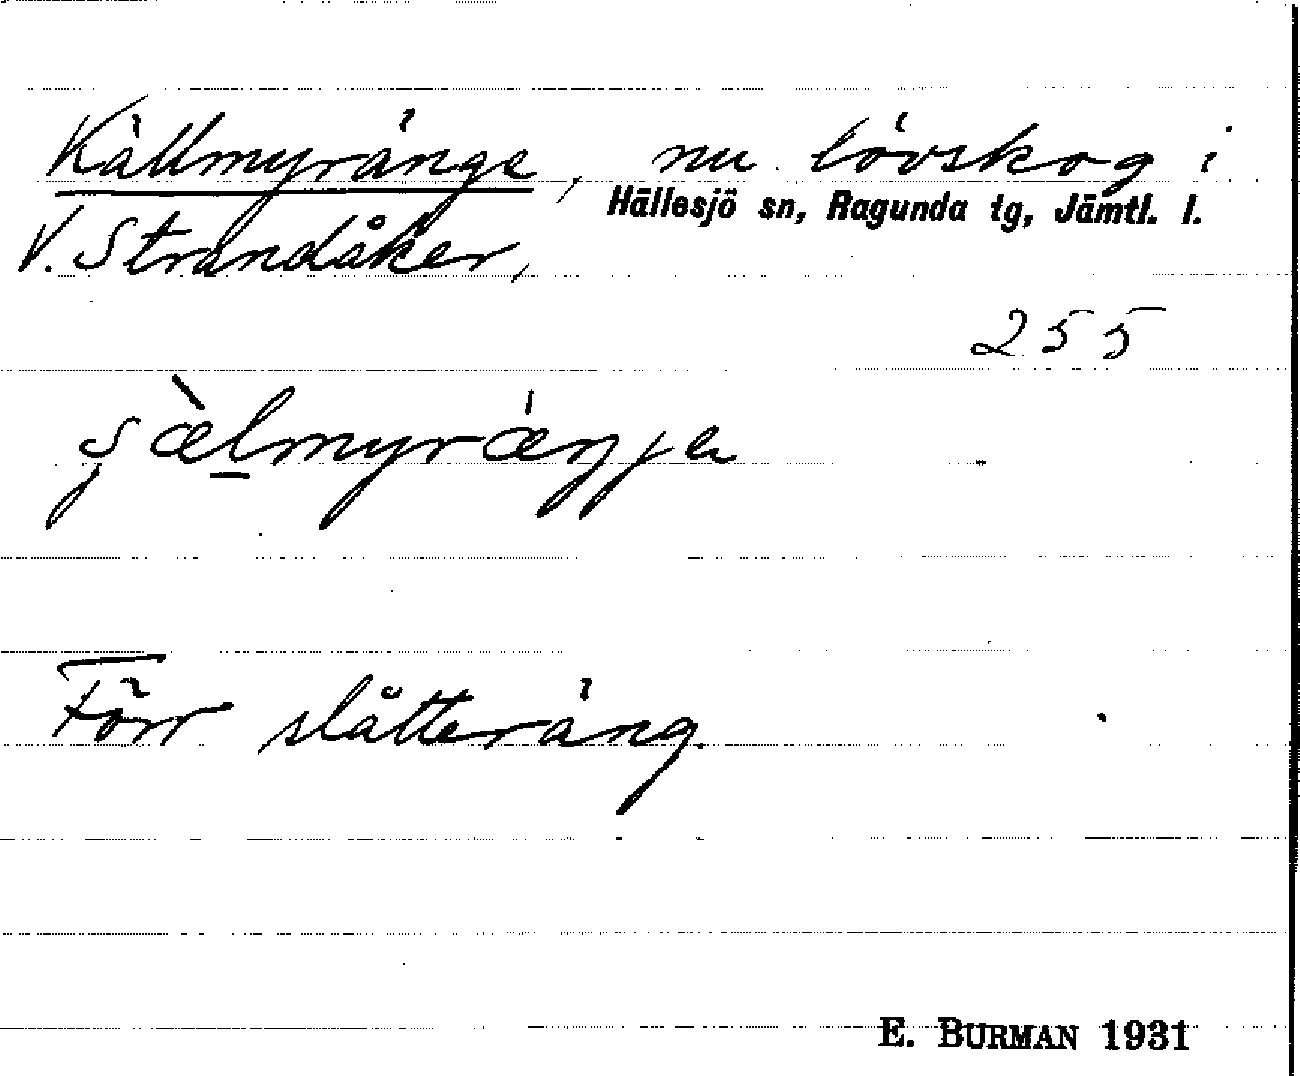 Källmyränge, nu lövskog i
Hällesjö sn, Ragunda tg, Jämtl. l.
V. Strandåker,
255
Förr slåtteräng.
E. BURMAN 1931